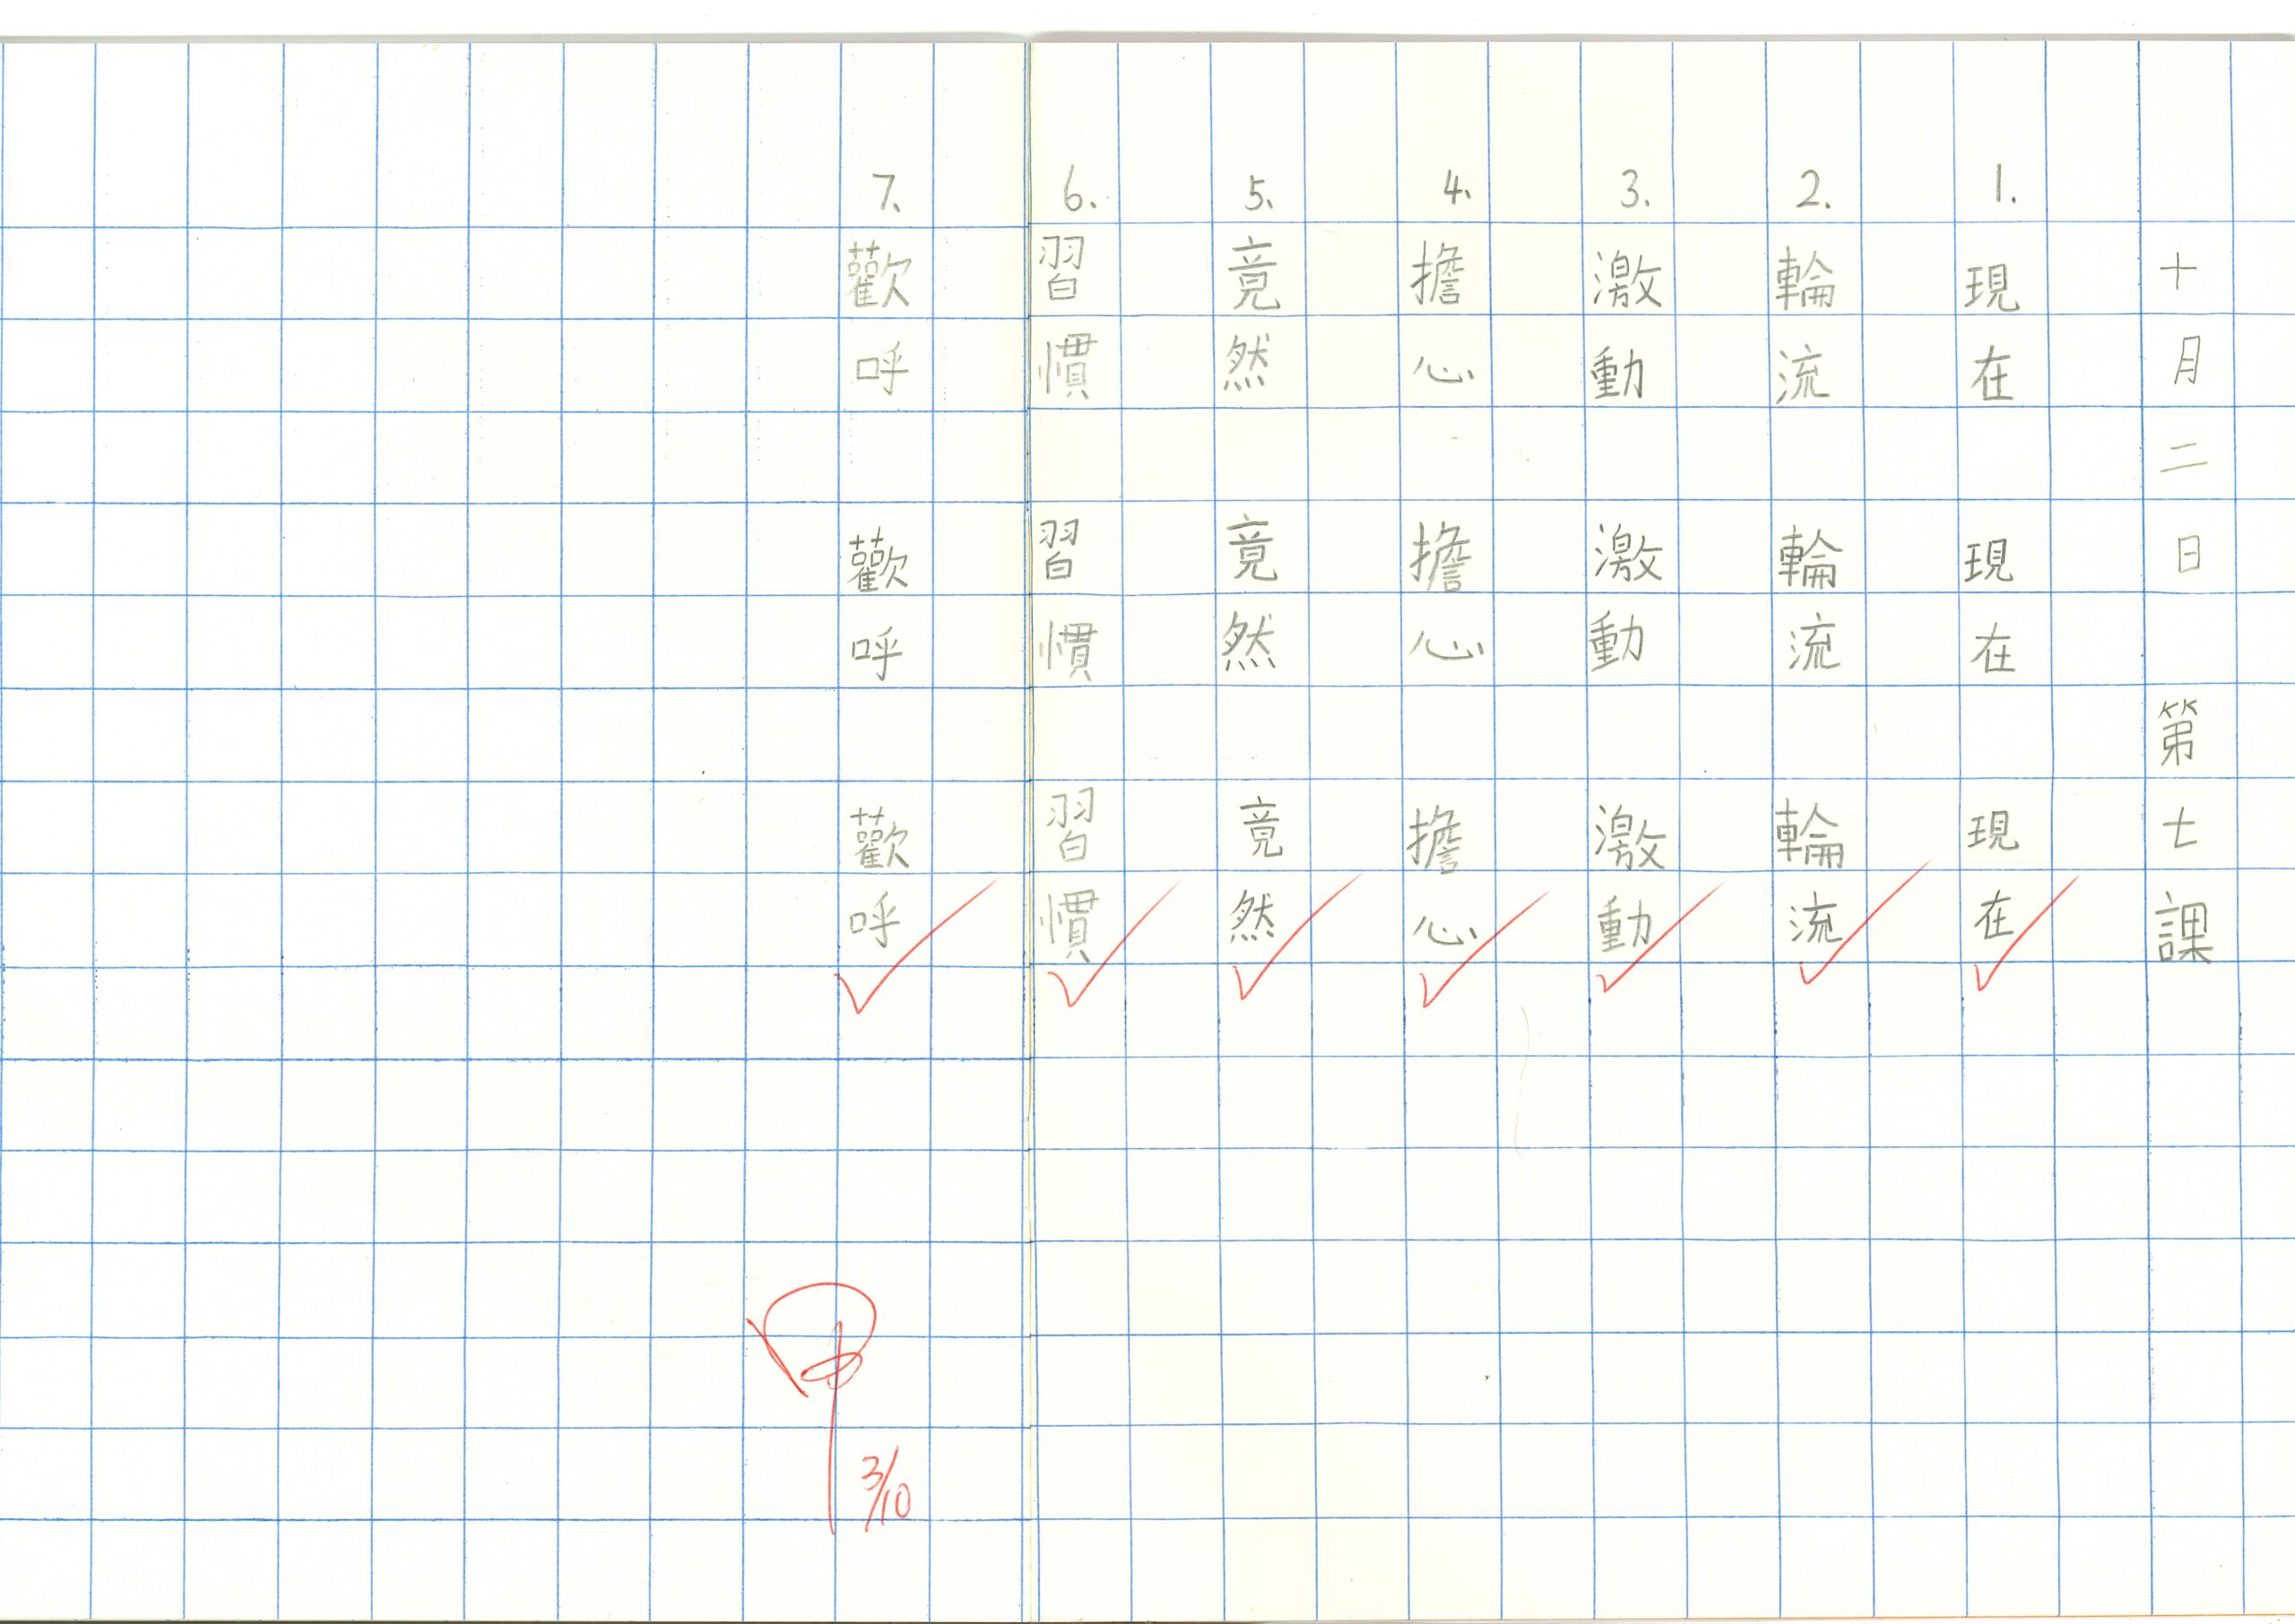 十月二日 第七課
1. 現在 現在 現在
2. 輪流 輪流 輪流
3. 激動 激動 激動
4. 擔心 擔心 擔心
5. 竟然 竟然 竟然
6. 習慣 習慣 習慣
7. 歡呼 歡呼 歡呼
甲
3/10